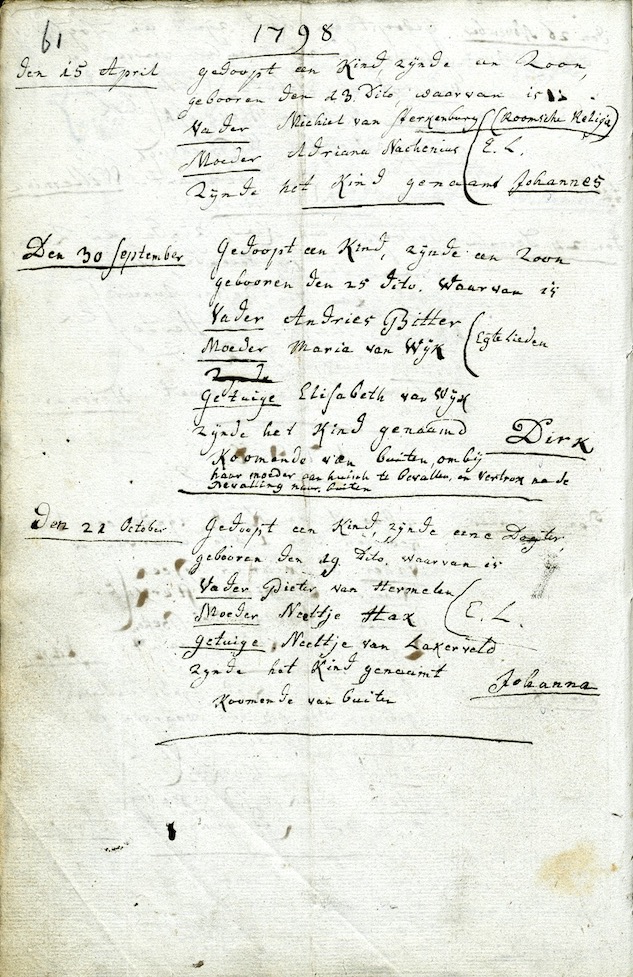 61
1798
den 15 April gedoopt een Kind, zÿnde een Zoon,
gebooren den 13 Dito, waarvan is
Vader Michiel van Sterkenburg (Roomsche Religie)
Moeder Adriana Nachenius E. L.
Zÿnde het Kind genaamt Johannes
Den 30 September Gedoopt een Kind, zÿnde een Zoon
gebooren den 25 dito. Waarvan is
Vader Andries Bitter
Moeder Maria van Wÿk Egte Lieden
Getuige Elisabeth van Wÿk
zÿnde het Kind genaamd Dirk
Koomende van buiten, om bij
haar moeder aan huisch te bevallen, en vertrok na de
Bevalling naar buiten
Den 21 October Gedoopt een Kind, zÿnde eene Dogter,
gebooren den 19 Dito. waarvan is
Vader Pieter van Hermelen
Moeder Neeltje Hax E. L.
getuige Neeltje van Lakerveld
zÿnde het Kind genaamt
Johanna
Koomende van buiten